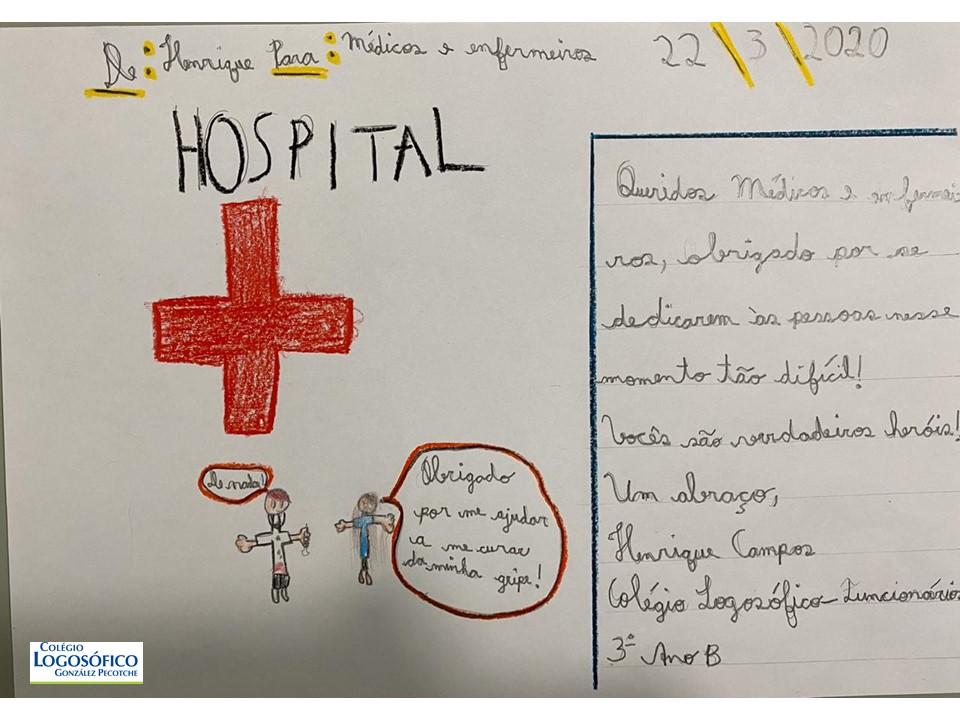 De: Henrique Para: Médicos e enfermeiros 22\3\2020
HOSPITAL
De nada!
Obrigado
por me ajudar
a me curar
da minha gripe!
Queridos Médicos e enfermei
ros, obrigado por se
dedicarem às pessoas nesse
momento tão difícil!
Vocês são verdadeiros heróis!
Um abraço,
Henrique Campos
Colégio Logosófico-Funcionários
3º Ano B
COLÉGIO
LOGOSÓFICO
GONZÁLEZ PECOTCHE